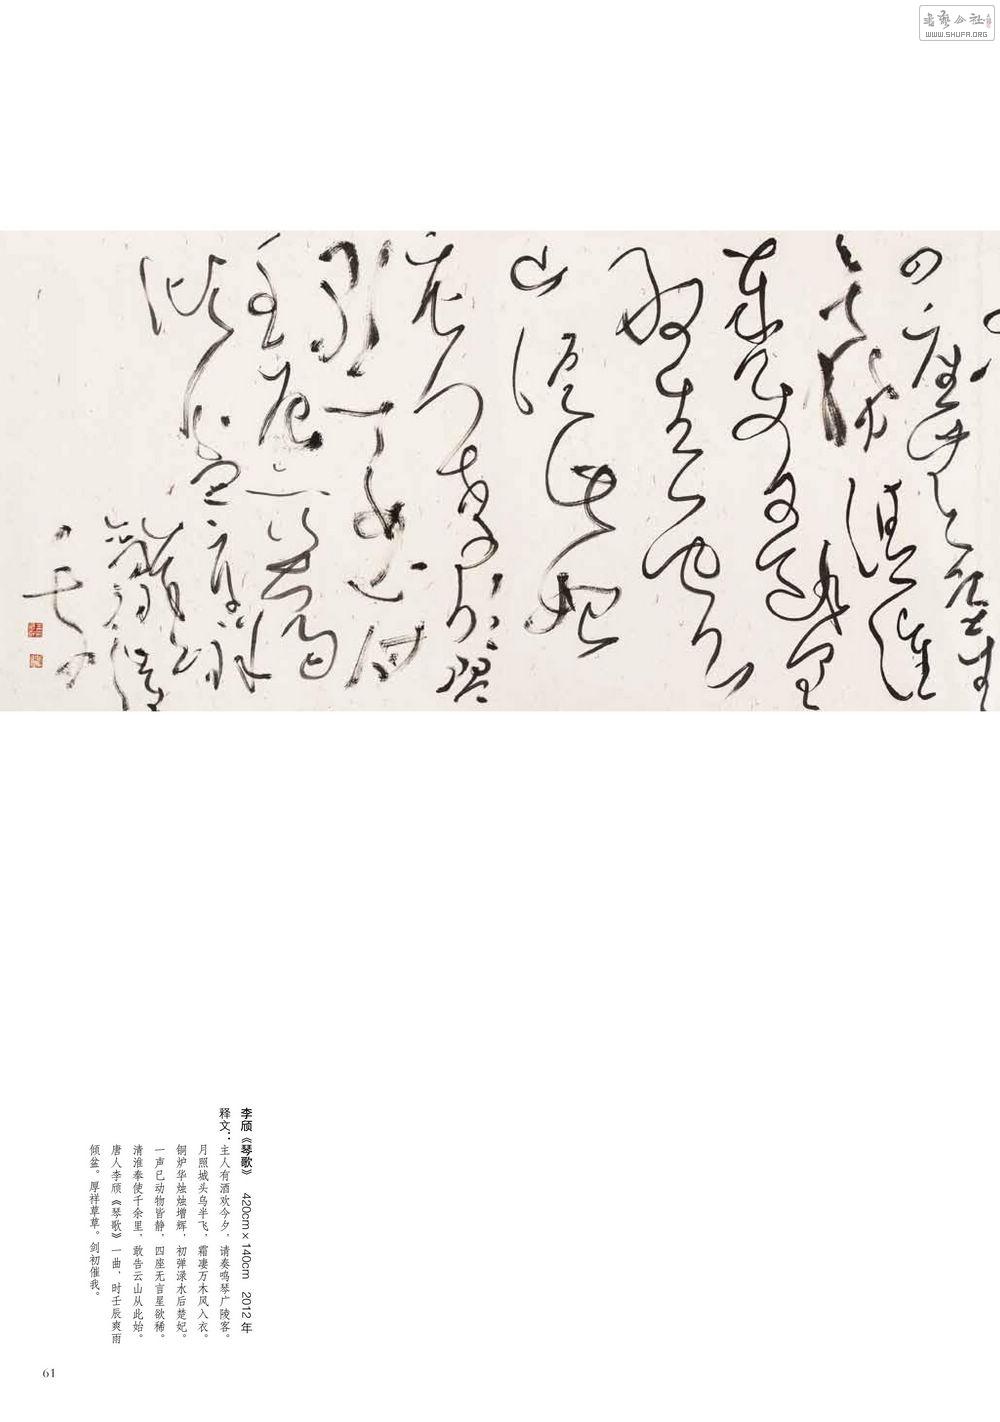 书艺公社
WWW.SHUFA.ORG
四座无言星欲稀
清淮
奉使千余里
敢告云
山从此始
唐人李颀琴
歌一曲时
壬辰
李颀《琴歌》 420cm×140cm 2012年
释文：主人有酒欢今夕，请奏鸣琴广陵客。
月照城头乌半飞，霜凄万木风入衣。
铜炉华烛烛增辉，初弹渌水后楚妃。
一声已动物皆静，四座无言星欲稀。
清淮奉使千余里，敢告云山从此始。
唐人李颀《琴歌》一曲，时壬辰爽雨
倾盆。厚祥草草。剑初催我。
61